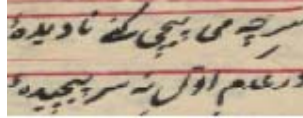 سر چه می پیچی کنی نادیدهٔ
در عدم اول نه سر پیچیدهٔ